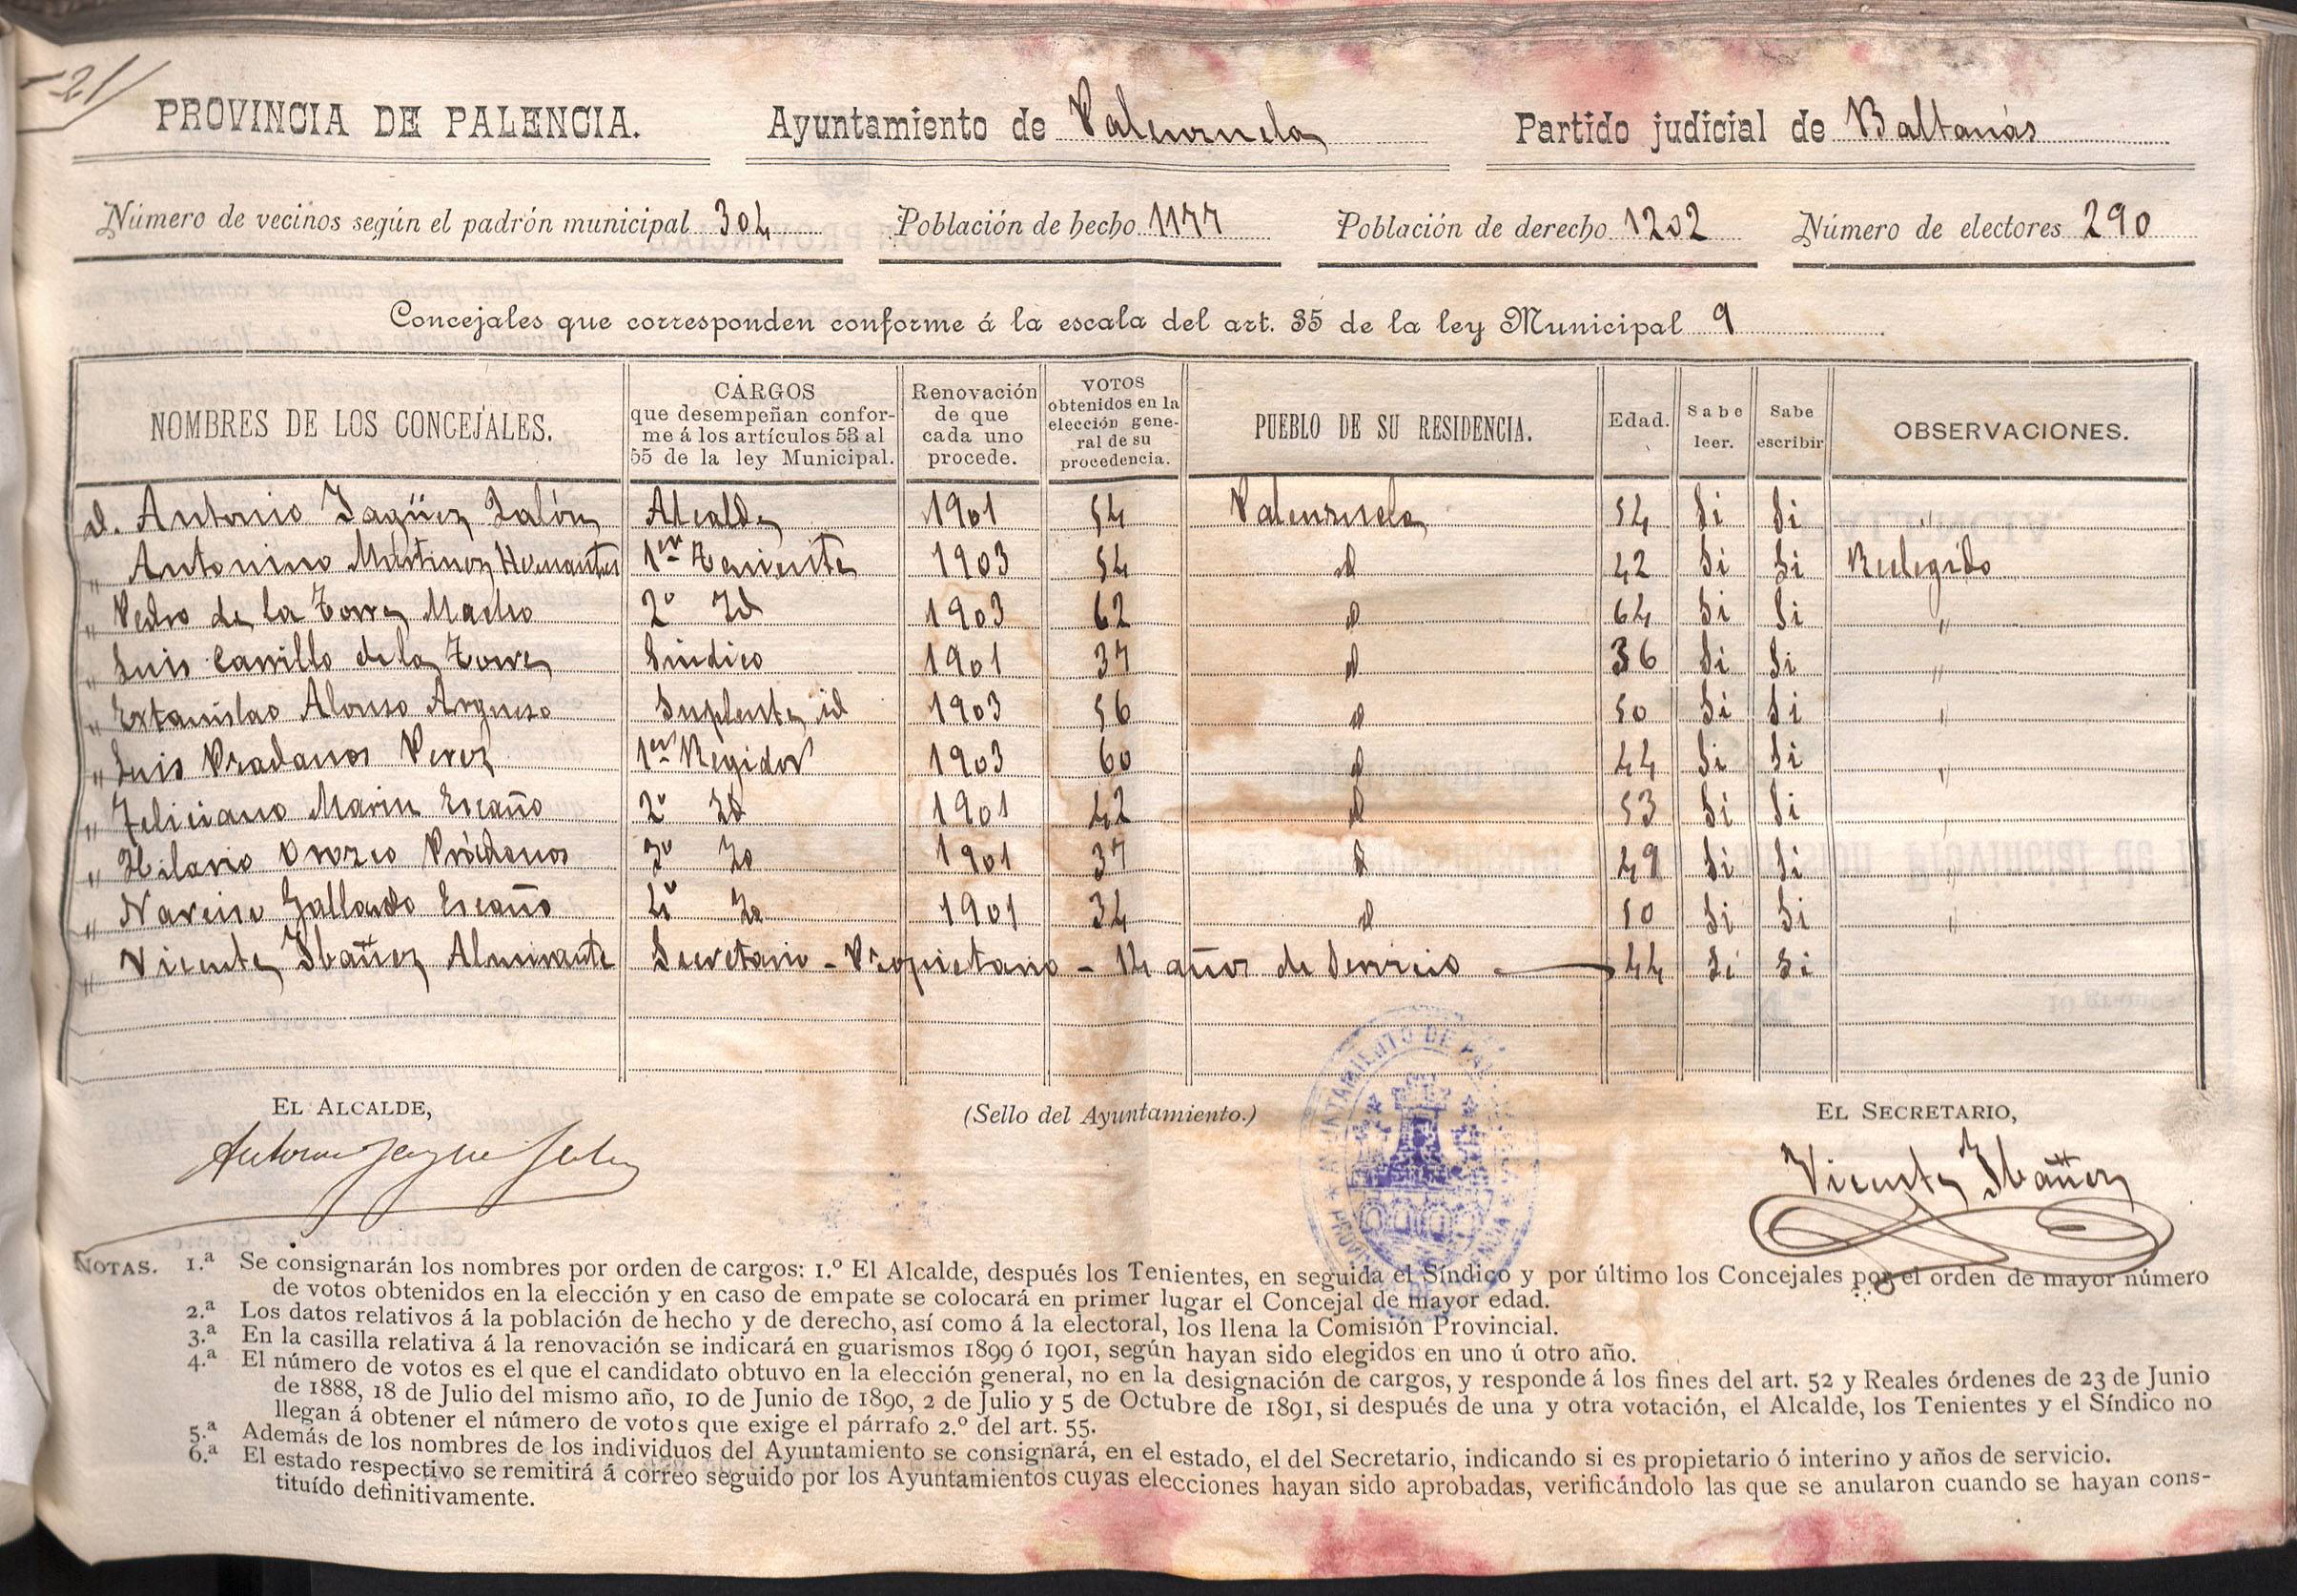 21
PROVINCIA DE PALENCIA. Ayuntamiento de Palenzuela Partido judicial de Baltanás
Número de vecinos según el padrón municipal 304 Población de hecho 1177 Población de derecho 1202 Número de electores 290
Concejales que corresponden conforme á la escala del art. 35 de la ley Municipal 9
NOMBRES DE LOS CONCEJALES. CARGOS que desempeñan conforme á los artículos 53 al 55 de la ley Municipal. Renovación de que cada uno procede. VOTOS obtenidos en la elección general de su procedencia. PUEBLO DE SU RESIDENCIA. Edad. Sabe leer. Sabe escribir OBSERVACIONES.
D. Antonio Yagüez Zalón Alcalde 1901 54 Palenzuela 54 Si Si "
" Antonino Martinez 1er Teniente 1903 54 id 42 Si Si Reelegido
" Pedro de la Torre Macho 2º Id 1903 62 id 64 Si Si "
" Luis Carrillo de la Torre Sindico 1901 37 id 36 Si Si "
" Extanislao Alonso Argueso Suplente id 1903 56 id 50 Si Si "
" Luis Pradanos Perez 1er Regidor 1903 60 id 44 Si Si "
" Feliciano Marin Escaño 2º Id 1901 42 id 53 Si Si "
" Hilario Orozco Prádanos 3º Id 1901 37 id 49 Si Si "
" Narciso Gallardo Escaño 4º Id 1901 34 id 50 Si Si "
" Vicente Ibañez Almirante Secretario - Propietario - 14 años de Servicio 44 Si Si
EL ALCALDE, (Sello del Ayuntamiento.) EL SECRETARIO,
AYUNTAMIENTO DE
PROVINCIA
Vicente Ibañez
NOTAS. 1.ª Se consignarán los nombres por orden de cargos: 1.º El Alcalde, después los Tenientes, en seguida el Síndico y por último los Concejales por el orden de mayor número
de votos obtenidos en la elección y en caso de empate se colocará en primer lugar el Concejal de mayor edad.
2.ª Los datos relativos á la población de hecho y de derecho, así como á la electoral, los llena la Comisión Provincial.
3.ª En la casilla relativa á la renovación se indicará en guarismos 1899 ó 1901, según hayan sido elegidos en uno ú otro año.
4.ª El número de votos es el que el candidato obtuvo en la elección general, no en la designación de cargos, y responde á los fines del art. 52 y Reales órdenes de 23 de Junio
de 1888, 18 de Julio del mismo año, 10 de Junio de 1890, 2 de Julio y 5 de Octubre de 1891, si después de una y otra votación, el Alcalde, los Tenientes y el Síndico no
llegan á obtener el número de votos que exige el párrafo 2.º del art. 55.
5.ª Además de los nombres de los individuos del Ayuntamiento se consignará, en el estado, el del Secretario, indicando si es propietario ó interino y años de servicio.
6.ª El estado respectivo se remitirá á correo seguido por los Ayuntamientos cuyas elecciones hayan sido aprobadas, verificándolo las que se anularon cuando se hayan cons-
tituído definitivamente.